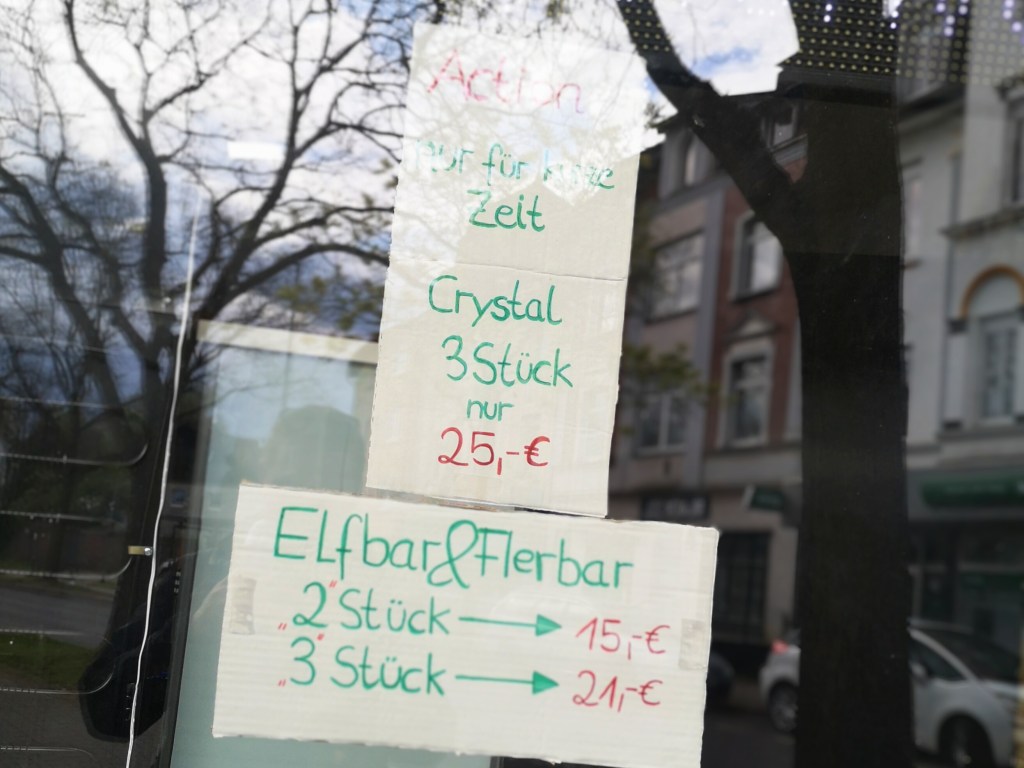 Action
nur für kurze
Zeit
Crystal
3 Stück
nur
25,-€
Elfbar & Flerbar
„2" Stück → 15,-€
„3" Stück → 21,-€